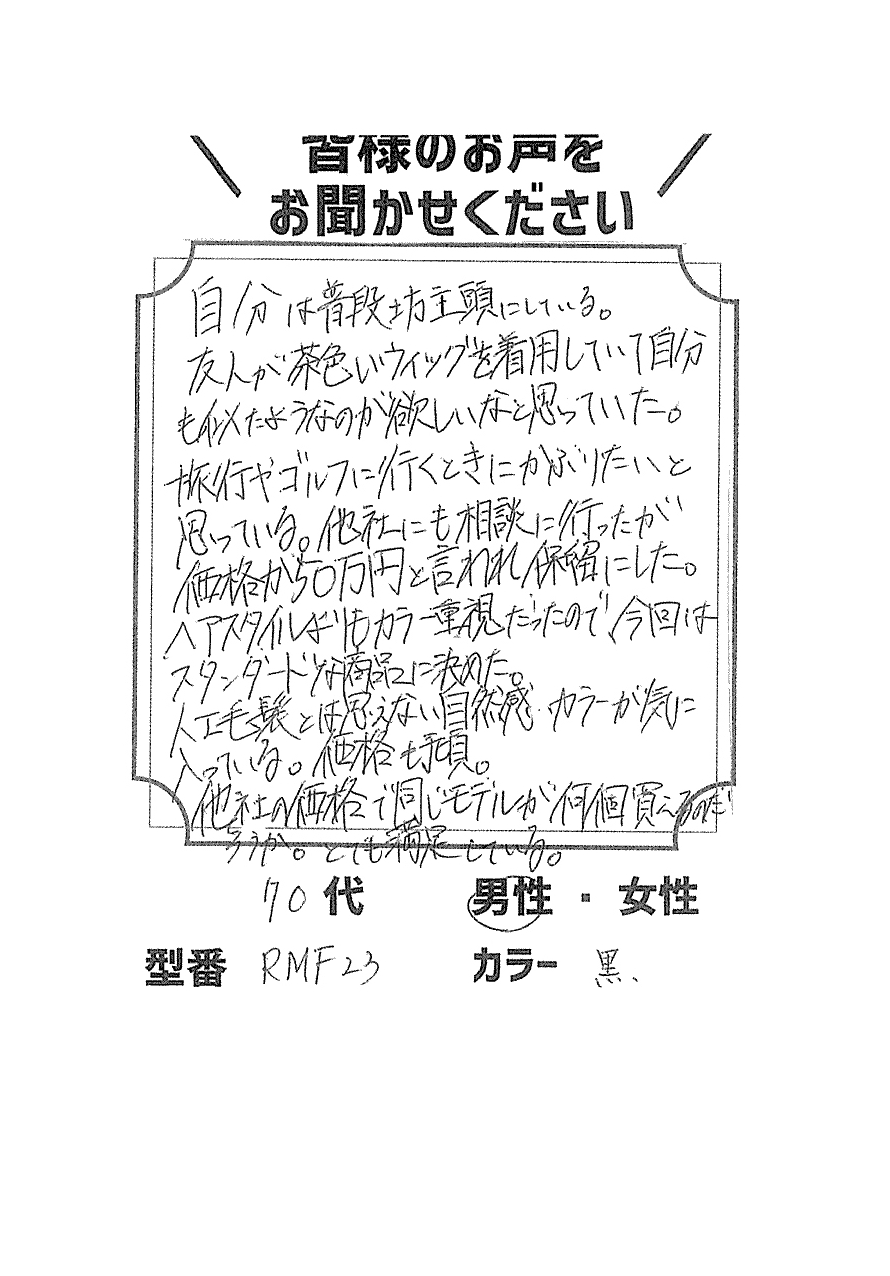 皆様のお声を
お聞かせください
自分は普段坊主頭にしている。
友人が茶色いウィッグを着用していて自分
も似たようなのが欲しいなと思っていた。
旅行やゴルフに行くときにかぶりたいと
思っている。他社にも相談に行ったが
価格が50万円と言われ保留にした。
ヘアスタイルよりもカラー重視だったので、今回は
スタンダードな商品に決めた。
人工毛髪とは思えない自然感・カラーが気に
入っている。価格も手頃。
他社の価格で同じモデルが何個買えるのだ
ろうか。とても満足している。
70代 男性・女性
型番 RMF23 カラー 黒、